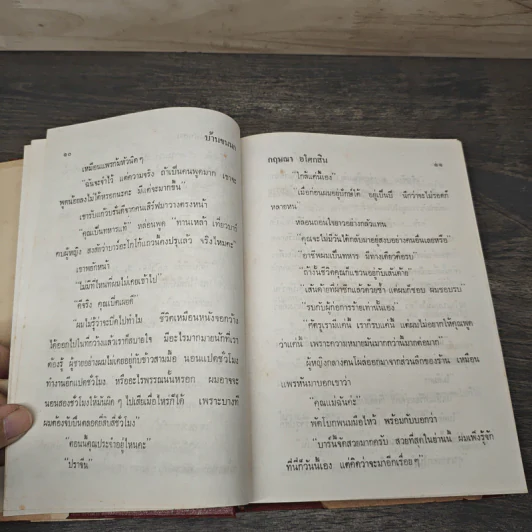 ๑๐
บ้านขนนก
เหมือนแพรก้มหัวนิดๆ
"ฉันจะจำไว้ แต่ความจริง ถ้าเป็นคนพูดมาก เราจะ
พูดน้อยลงไม่ได้หรอกนะคะ มีแต่จะมากขึ้น"
เขารับแก้วบรั่นดีจากคนเสิร์ฟมาวางตรงหน้า
"คุณเป็นทหารแท้" หล่อนพูด "ทานเหล้า เที่ยวบาร์
คบผู้หญิง สงสัยว่าบาร์อะไรใต้แถวนี้คงปรุแล้ว จริงไหมคะ"
เขาพยักหน้า
"ไม่มีที่ไหนที่ผมไม่เคยเข้าไป"
"ดีจริง คุณเบื่อผอดี"
"ผมไม่รู้ว่าจะเบื่อไปทำไม ชีวิตเหมือนหนังจอกว้าง
ได้ออกไปในที่กว้างแล้วเราก็สบายใจ มีอะไรมากมายนักที่เรา
ต้องรู้ ผู้ชายอย่างผมไม่เคยอยู่กับข้าวสามมื้อ นอนแปดชั่วโมง
ทำงานอีกแปดชั่วโมง หรืออะไรพรรณนั้นหรอก ผมอาจจะ
นอนสองชั่วโมงให้มันผิดๆ ไปเสียเมื่อไหร่ก็ได้ เพราะบางที
ผมต้องขับปืนตลอดยี่สิบสี่ชั่วโมง"
"ตอนนี้คุณประจำอยู่ไหนคะ"
"ปราจีน"
กฤษณา อโศกสิน
๑๑
"ใกล้แค่นี้เอง"
"เมื่อก่อนผมอยู่ปักษ์ใต้ อยู่เป็นปี นึกว่าจะไม่รอดก็
หลายหน"
หล่อนถอนใจยาวอย่างกลัวแทน
"คุณจะไม่มีวันได้กลับมาอยู่สงบอย่างคนอื่นเลยหรือ"
"อาชีพผมเป็นทหาร มีทางเดียวคือรบ"
"ยังงั้นชีวิตคุณก็แขวนอยู่กับเส้นด้าย"
"เส้นด้ายที่ผ่าซีกแล้วด้วยซ้ำ แต่ผมก็ชอบ ผมชอบรบ"
"รบกับผู้ก่อการร้ายเท่านั้นเอง"
"ศัตรูเราแค่นี้ เราก็รบแค่นี้ แต่ผมไม่อยากให้คุณพูด
ว่าแค่นี้ เพราะความหมายมันมากกว่านั้นมากต่อมาก"
ผู้หญิงกลางคนโผล่ออกมาจากส่วนลึกของร้าน เหมือน
แพรหันมาบอกเขาว่า
"คุณแม่ฉันค่ะ"
พัดโบกพนมมือไหว้ พร้อมกับบอกว่า
"บาร์นี้จัดสวยมากครับ สวยที่สุดในย่านนี้ ผมเพิ่งรู้จัก
ที่นี่ก็วันนี้เอง แต่คิดว่าจะมาอีกเรื่อยๆ"